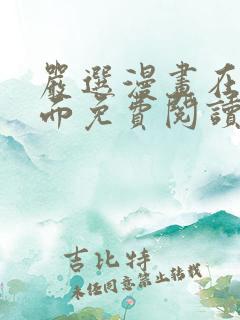 嚴選漫畫在
而免費閱讀
吉比特
未經同意禁止轉載